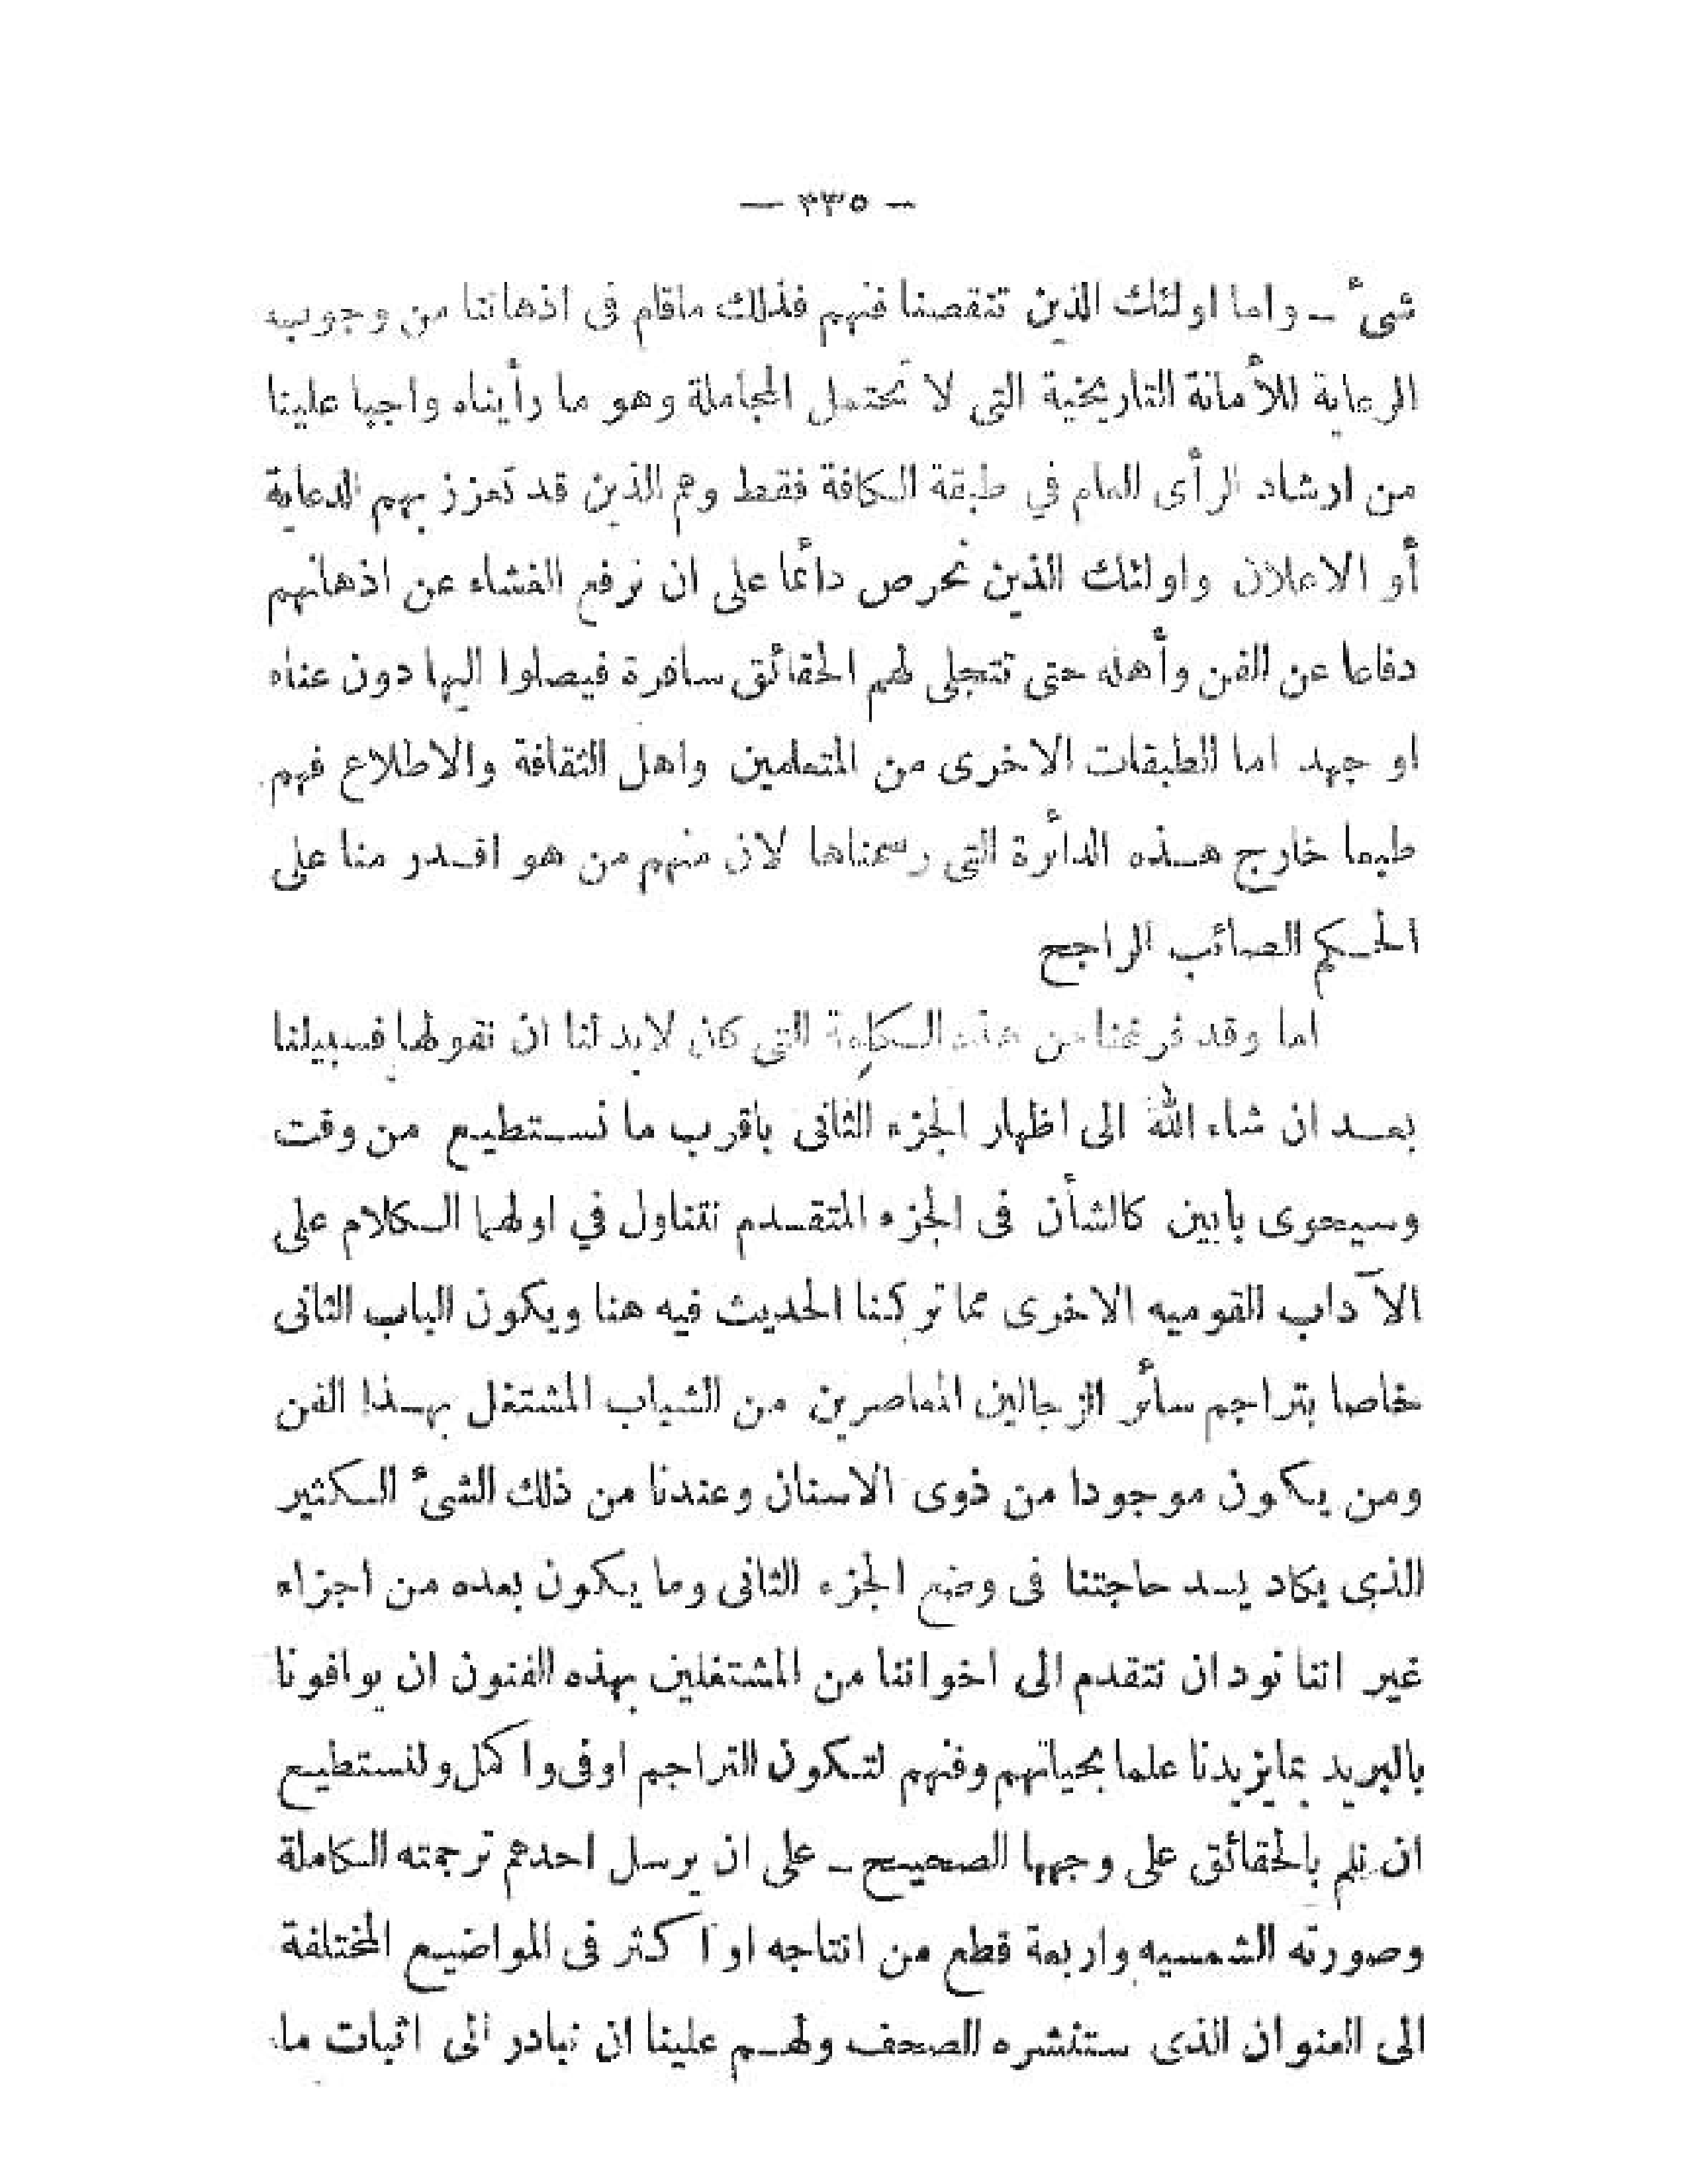 — ٢٣٥ —
شىء ـ واما اولئك الذين تنقصنا فنهم فذلك ماقام فى اذهاننا من وجوب
الرعاية للأمانة التاريخية التى لا تحتمل المجاملة وهو ما رأيناه واجبا علينا
من ارشاد الرأى العام في طبقة الكافة فقط وهم الذين قد تعزز بهم الدعاية
أو الاعلان واولئك الذين نحرص دائما على ان نرفع الغشاء عن اذهانهم
دفاعا عن الفن وأهله حتى تتجلى لهم الحقائق سافرة فيصلوا اليها دون عناء
او جهد اما الطبقات الاخرى من المتعلمين واهل الثقافة والاطلاع فهم
طبعا خارج هذه الدائرة التى رسمناها لان منهم من هو اقدر منا على
الحكم الصائب الراجح
اما وقد فرغنا من هذه الكلمة التى كان لابد لنا ان نقولها فسبيلنا
بعد ان شاء الله الى اظهار الجزء الثانى باقرب ما نستطيع من وقت
وسيحوى بابين كالشأن فى الجزء المتقدم نتناول في اولهما الكلام على
الآداب القوميه الاخرى مما تركنا الحديث فيه هنا ويكون الباب الثانى
خاصا بتراجم سائر الزجالين المعاصرين من الشباب المشتغل بهذا الفن
ومن يكون موجودا من ذوى الاسنان وعندنا من ذلك الشىء الكثير
الذى يكاد يسد حاجتنا فى وضع الجزء الثانى وما يكون بعده من اجزاء
غير اننا نود ان نتقدم الى اخواننا من المشتغلين بهذه الفنون ان يوافونا
بالبريد بمايزيدنا علما بحياتهم وفنهم لتكون التراجم اوفى واكمل ولنستطيع
ان نلم بالحقائق على وجهها الصحيح ـ على ان يرسل احدهم ترجمته الكاملة
وصورته الشمسيه واربعة قطع من انتاجه او اكثر فى المواضيع المختلفة
الى العنوان الذى ستنشره الصحف ولهم علينا ان نبادر الى اثبات ما